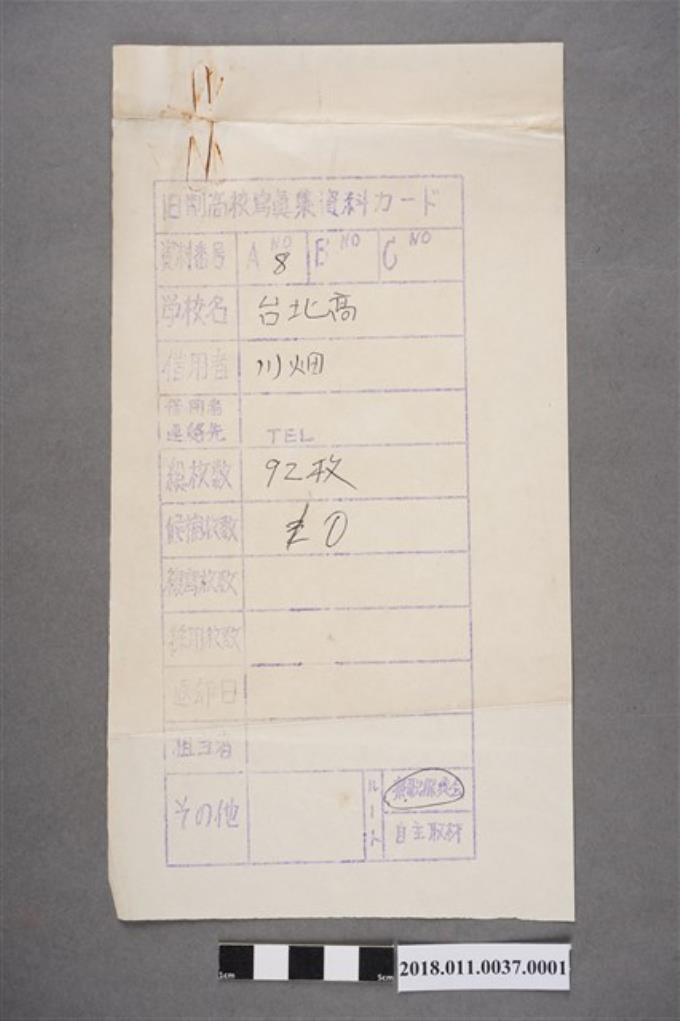 旧制高校寫眞集資料カード
資料番号 A NO 8 B NO C NO
学校名 台北高
借用者 川畑
借用者
連絡先 TEL
総枚数 92枚
候補枚数 10
複写枚数
採用枚数
返却日
担当者
その他 ルート
自主取材
1cm 5cm
2018.011.0037.0001